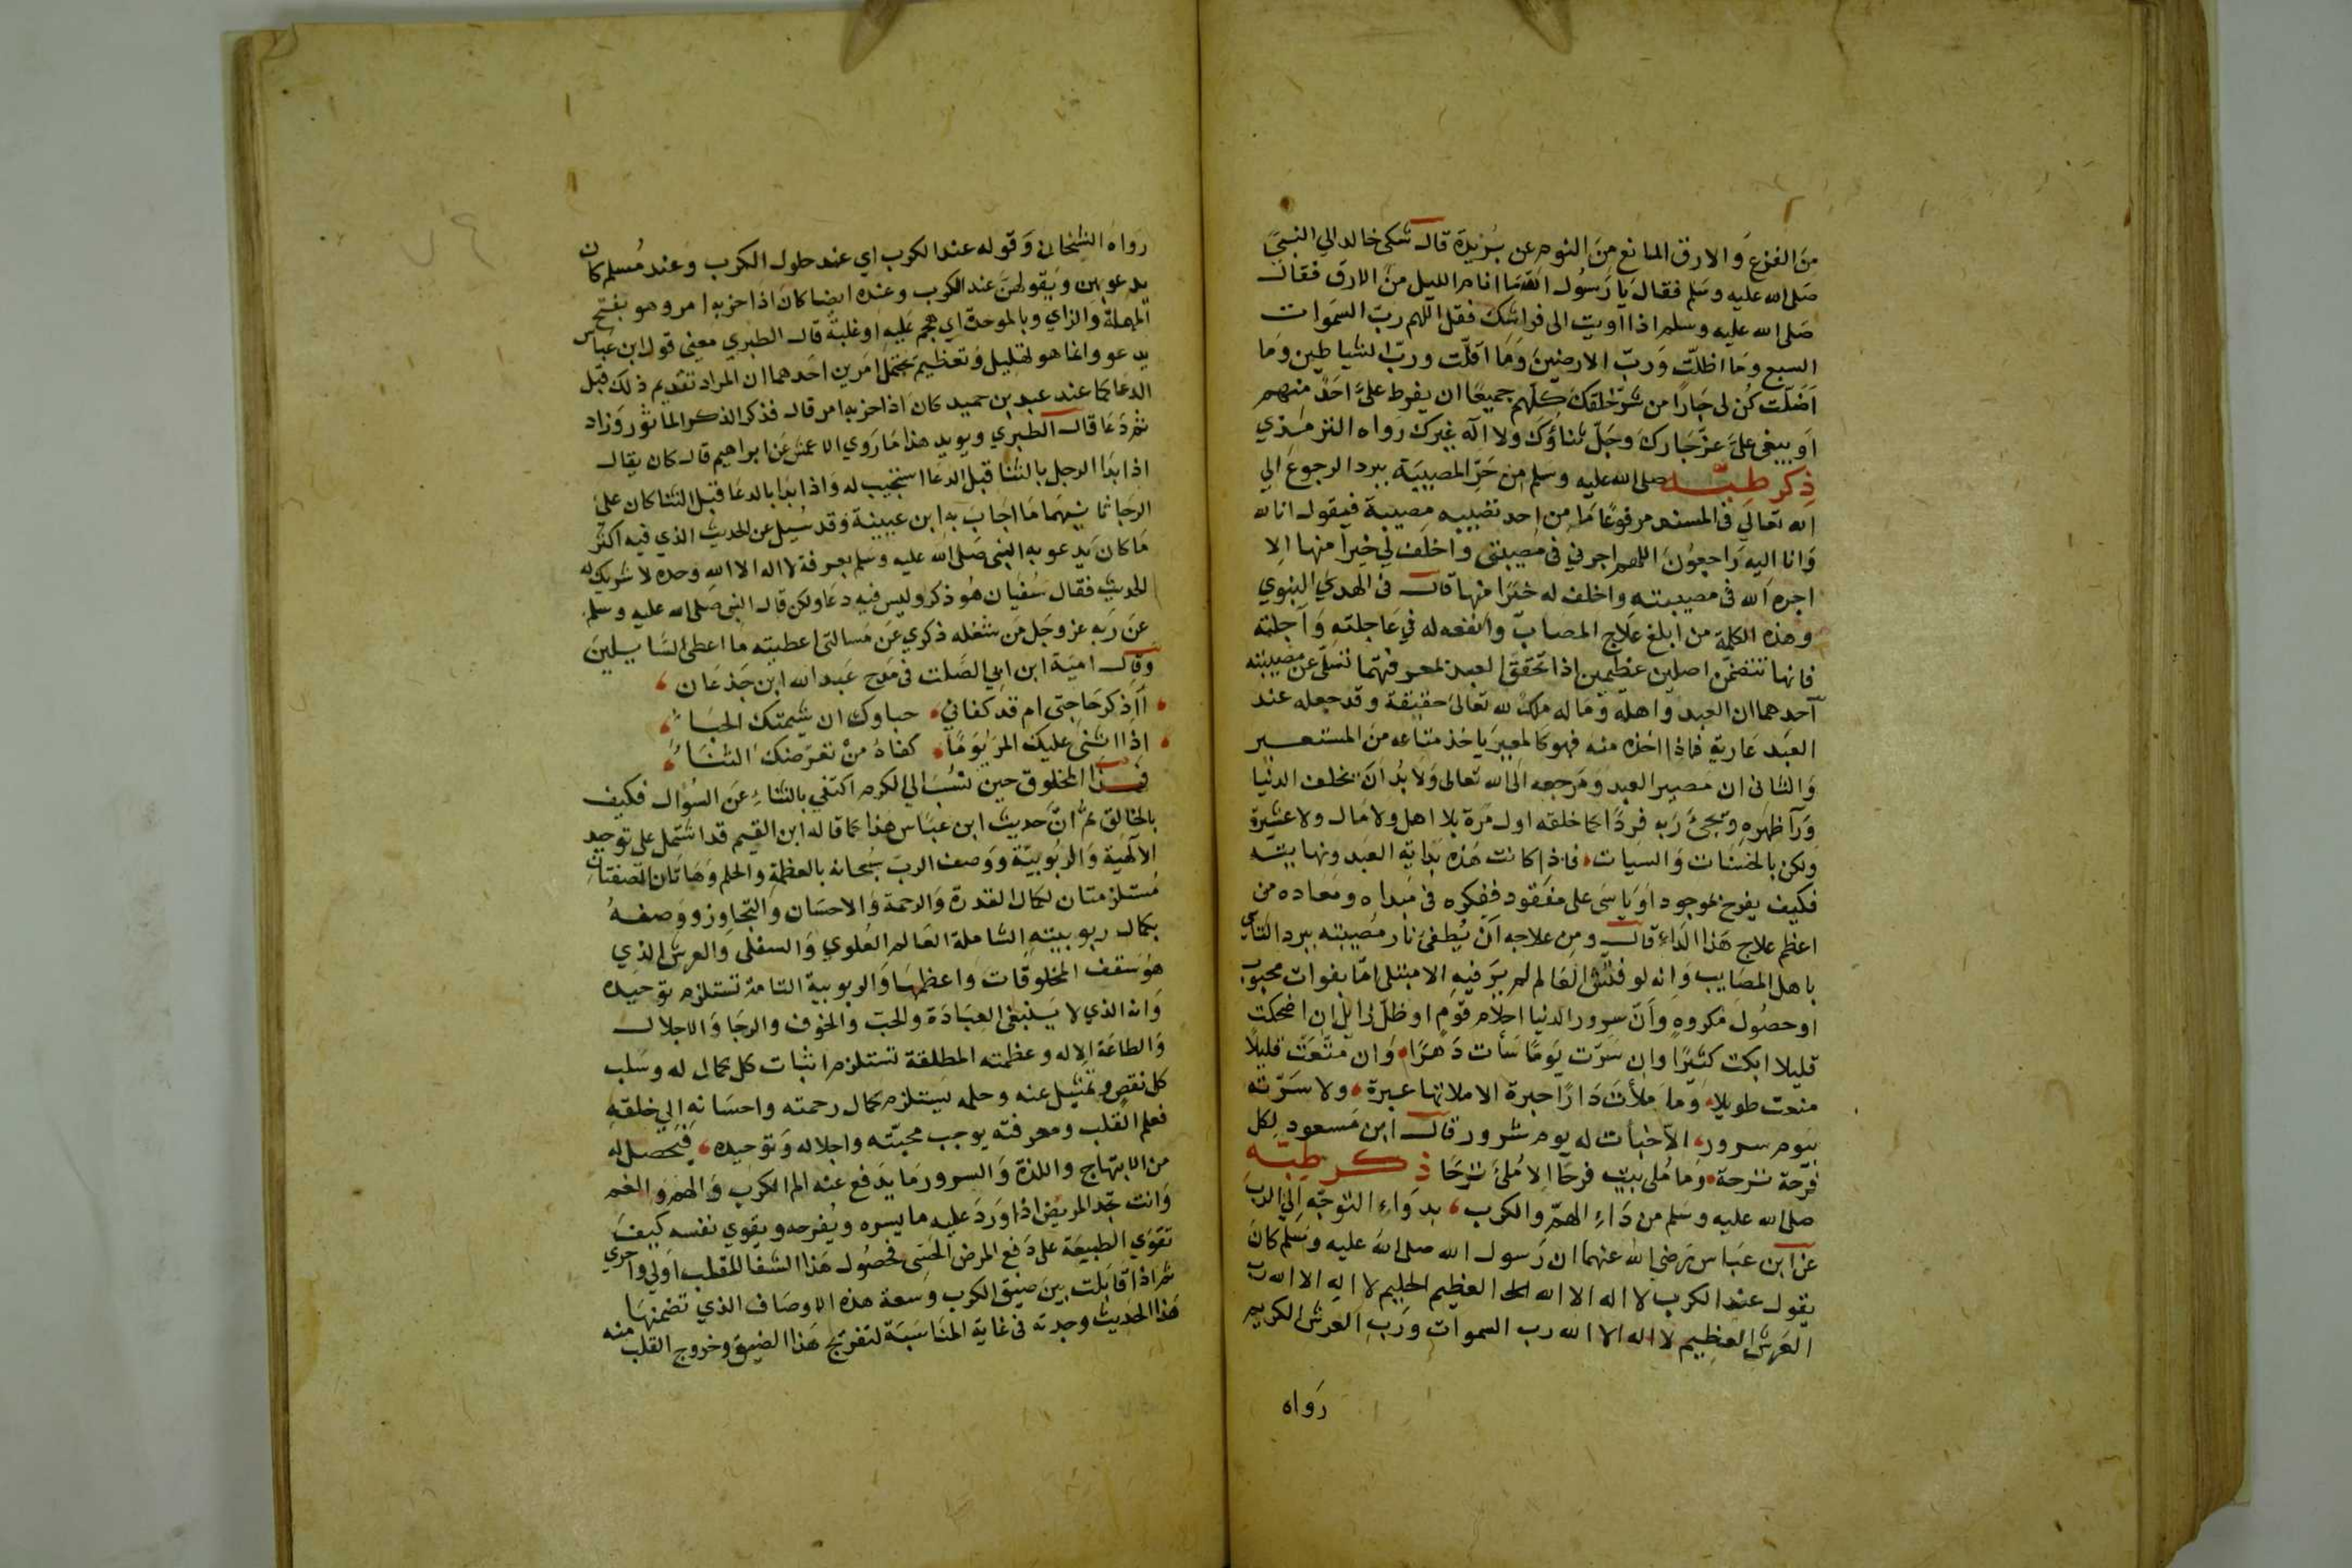 من الفزع والارق المانع من النوم عن بُريدة قال شكى خالد الي النبي
صلى الله عليه وسلم فقال يا رسول الله ما انام الليل من الارق فقال
صلى الله عليه وسلم اذا اويت الى فراشك فقل اللهم رب السموات
السبع وما اظلت ورب الارضين وما اقلت ورب الشياطين وما
اضلت كُن لى جارا من شر خلقك كلهم جميعا ان يفرط علىّ احد منهم
او يبغى علىّ عز جارك وجلّ ثناؤك ولا اله غيرك رواه الترمذي
ذكر طبه صلى الله عليه وسلم من حَرّ المصيبة ببرد الرجوع الي
الله تعالي فى المسند مرفوعا ما من احد تصيبه مصيبة فيقول انا لله
وانا اليه راجعون اللهم اجرني فى مصيبتى واخلف لي خيرا منها الا
اجره الله فى مصيبته واخلف له خيرًا منها قال فى الهدي النبوي
وهذه الكلمة من ابلغ علاج المصاب وانفعه له في عاجلته وآجلته
فانها تتضمن اصلين عظيمين اذا تحقق العبد بمعرفتهما تسلّى عن مصيبته
احدهما ان العبد واهله وماله ملك لله تعالى حقيقة وقد جعله عند
العبد عارية فاذا اخذه منه فهو كالمعير ياخذ متاعه من المستعير
والثانى ان مصير العبد ومرجعه الى الله تعالى ولا بُد ان يخلف الدنيا
ورآ ظهره ويجئ ربه فردًا كما خلقه اول مرّة بلا اهل ولا مال ولا عشيرة
ولكن بالحسنات والسيات فاذا كانت هذه بداية العبد ونهايته
فكيف يفرح بموجود او ياسَى على مفقود ففكره فى مبداه ومعاده من
اعظم علاج هذا الداء قال ومن علاجه ان يُطفئ نار مُصيبته ببرد التاسى
باهل المصايب وانه لو فتش العالم لم ير فيه الا مبتلى امّا بفوات محبوب
او حصُول مكروه وانّ سرور الدنيا احلام قوم او ظلّ زايل ان اضحكت
قليلا ابكت كثيرًا وان سَرّت يومًا سأت دَهرًا وان متّعت قليلًا
منعت طويلا وما ملأت دارًا حبرة الا ملاتها عبرة ولا سَرّته
بيوم سرور الا خبأت له يوم شرور قال ابن مسعود لكل
فرحة ترحة وما مُلى بيت فرحًا الا مُلئ ترحًا ذكر طبه
صلى الله عليه وسلم من دَاء الهمّ والكرب بدواء التوجّه الى الرب
عن ابن عبّاس رضي الله عنهما ان رسول الله صلى الله عليه وسلم كان
يقول عند الكرب لا اله الا الله العظيم الحليم لا اله الا الله رب
العرش العظيم لا اله الا الله رب السموات ورب العرش الكريم
رواه
رواه الشيخان وقوله عند الكرب اي عند حلول الكرب وعند مُسلم كان
يدعو بهن ويقولهنّ عند الكرب وعنده ايضا كان اذا حزبه امر وهو بفتح
المهملة والزاي وبالموحدة اي هجم عليه او غلبهُ قال الطبري معنى قول ابن عباس
يدعو وانما هو تهليل وتعظيم يحتمل امرين احدهما ان المراد تقديم ذلك قبل
الدعا كما عند عبد بن حميد كان اذا حزبه امر قال فذكر الذكر الماثور وزاد
ثم دَعا قال الطبري ويويد هذا ما روي الاعمش عن ابراهيم قال كان يقال
اذا بدا الرجل بالثنا قبل الدعا استجيب له واذا بدا بالدعا قبل الثنا كان على
الرجا ثانيهما ما اجاب به ابن عيينة وقد سُيل عن الحديث الذي فيه اكثر
ما كان يدعو به النبى صلى الله عليه وسلم بعرفة لا اله الا الله وحده لا شريك له
الحديث فقال سُفيان هُو ذكر وليس فيه دعا ولكن قال النبى صلى الله عليه وسلم
عن ربه عز وجل من شغله ذكري عن مسالتى اعطيته ما اعطى السّايلين
وقال امية ابن ابي الصَّلت فى مَدح عبد الله ابن جَدعان
أاذكر حاجتى ام قد كفاني حباوك ان شيمتك الحباء
اذا اثنى عليك المر يَومًا كفاهُ منْ تعرّضك الثناء
فهذا المخلوق حين نُسب الي الكرم اكتفي بالثناء عن السؤال فكيف
بالخالق ثم ان حديث ابن عبّاس هذا كما قاله ابن القيم قد اشتمل على توحيد
الالهية والربوبيّة ووصف الرب سبحانه بالعظمة والحلم وهاتان الصفتان
مُستلزمتان لكمال القدرة والرحمة والاحسان والتجاوز ووصفه
بكمال ربوبيته الشاملة العالم العُلوي والسفلى والعرش الذي
هو سقف المخلوقات واعظمها والربوبية التامة تستلزم توحيده
وانه الذي لا ينبغى العبادة والحب والخوف والرجا والاجلال
والطاعة الا له وعظمته المطلقة تستلزم اثبات كل كمال له وسلب
كل نقص وتمثيل عنه وحلمه يستلزم كمال رحمته واحسانه الي خلقه
فعلم القلب ومعرفته يوجب محبّته واجلاله وتوحيده فيحصل له
من الابتهاج واللذة والسرور ما يدفع عنه الم الكرب والهم والغم
وانت تجد المريض اذا ورد عليه ما يسره ويُفرحه ويقوي نفسه كيف
تقوي الطبيعة على دفع المرض الحسّى فحصُول هذا الشفا للقلب اولي واحري
ثم اذا قابلت بين ضيق الكرب وسعة هذه الاوصاف الذي تضمنها
هذا الحديث وجدته فى غاية المناسبة لتفريج هذا الضيق وخروج القلب منه